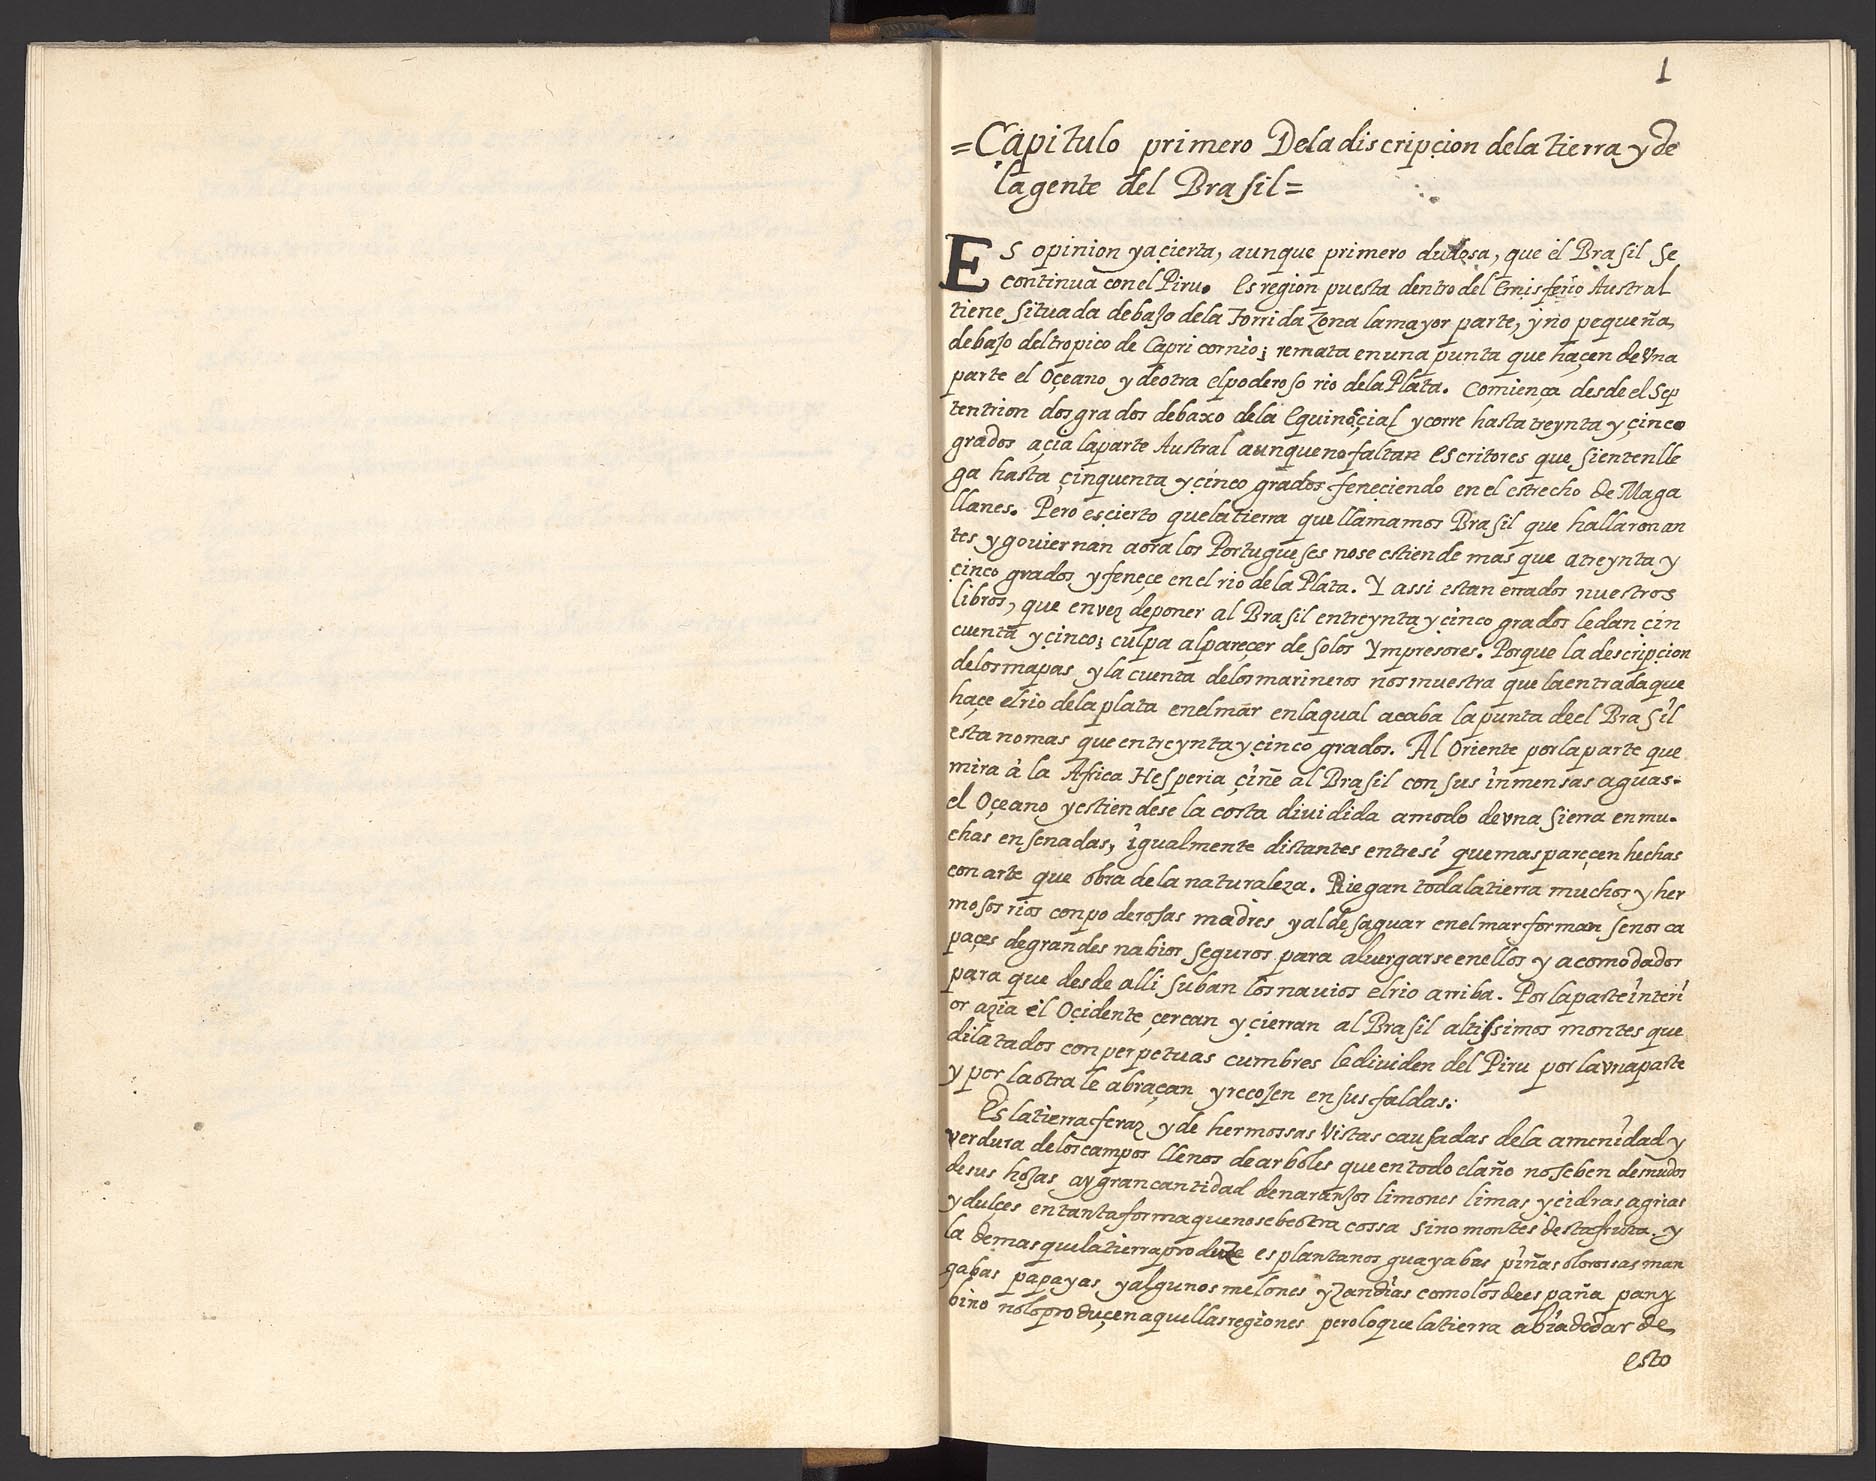 1
=Capitulo primero Dela discripçion dela tierra y de
la gente del Brasil=
ES opinion ya çierta, aunque primero dudosa, que el Brasil se
continua con el Piru. Es region puesta dentro del Emisferio Austral
tiene situada debaJo dela Torrida Zona la mayor parte, y no pequeña
debaJo del tropico de Capricornio; remata en una punta que haçen de Vna
parte el Oçeano y de otra el poderoso rio dela Plata. Comiença desde el Sep
tentrion dos grados debaxo dela Equinoçial y corre hasta treynta y çinco
grados açia la parte Austral aunque no faltan escritores que sienten lle
ga hasta çinquenta y çinco grados feneçiendo en el estrecho de Maga
llanes. Pero es çierto que la tierra que llamamos Brasil que hallaron an
tes y goviernan aora los Portugueses no se estiende mas que a treynta y
çinco grados y feneçe en el rio de la Plata. Y assi estan errados nuestros
libros, que en vez de poner al Brasil en treynta y çinco grados le dan çin
cuenta y çinco; culpa al pareçer de solos Ympresores. Porque la descripçion
de los mapas y la cuenta de los marineros nos muestra que la entrada que
haçe el rio de la plata en el mar en la qual acaba la punta de el Brasil
esta no mas que en treynta y çinco grados. Al Oriente por la parte que
mira à la Africa Hesperia çiñe al Brasil con sus inmensas aguas
el Oçeano y estiendese la costa dividida a modo de vna sierra en mu-
chas ensenadas, igualmente distantes entre si que mas pareçen hechas
con arte que obra de la naturaleza. Riegan toda la tierra muchos y her
mosos rios con poderosas madres y al desaguar en el mar forman senos ca
paçes de grandes nabios seguros para alvergarse en ellos y acomodados
para que desde alli suban los navios el rio arriba. Por la parte interi
or azia el Oçidente çercan y çierran al Brasil altissimos montes que
dilatados con perpetuas cumbres le dividen del Piru por la vna parte
y por la otra le abraçan y recoJen en sus faldas.
Es la tierra feraz y de hermossas vistas causadas dela amenidad y
verdura de los campos llenos de arboles que en todo el año no se ben desnudos
de sus hoJas ay gran cantidad de naranJos limones limas y cidras agrias
y dulçes en tanta forma que no se be otra cossa sino montes desta fruta. y
la demas que la tierra produze es plantanos guayabas piñas olorossas man
gabas papayas y algunos melones y zandias como los de españa pan y
bino no lo produçen aquellas regiones pero lo que la tierra abia de dar de
esto